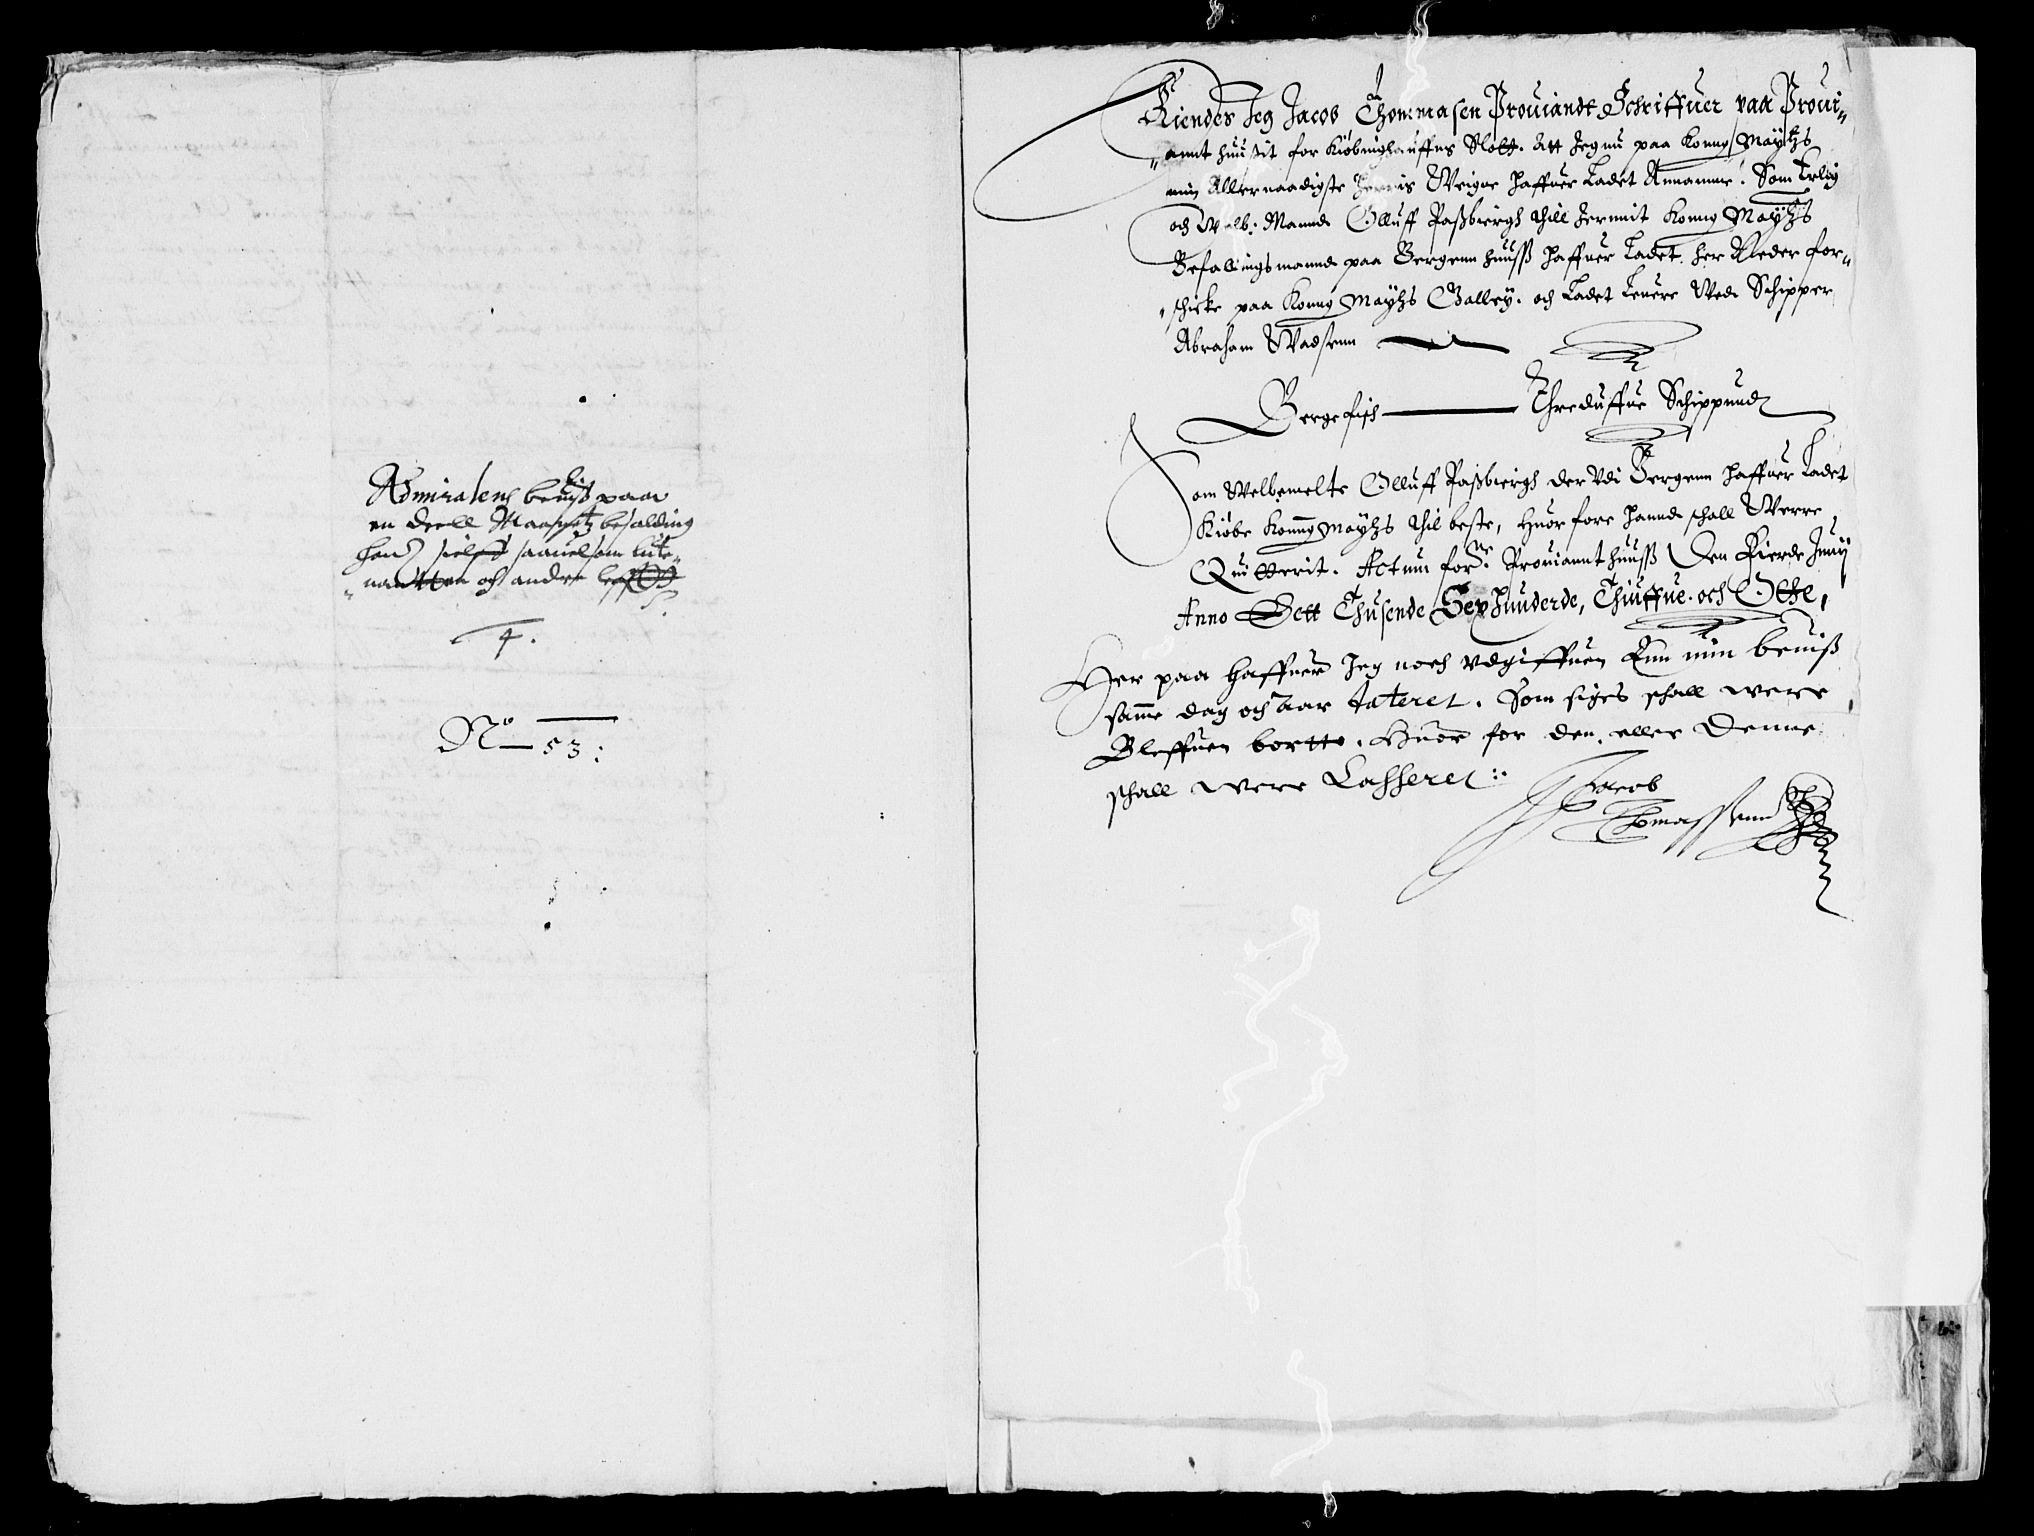 Admiralens beuiß paa
en deell Maanetz besolding
hand sielff saauelsom lute-
"nantten och andre
4.
No 53:
Kiendes Jeg Jacob Thommasen Prouiandt Schriffuer paa Proui"
"annt huusit for Kiøbnighauffns Slott. Att Jeg nu paa Konng Maÿtzs
min Allernaadigste Herris Weigne haffuer Ladet Annamme. Som Erlig
och Welb: Mannd Olluff Paßbiergh thill Jernnit Konng Maÿtzs
Befalingsmannd paa Bergenn huuss haffuer Ladet her Neder for"
"schicke paa Konng Maÿtzs Galley. och Ladet Leuere Wed Schipper
Abraham Madsenn
Bergefisch Threduffue Schippund
Som Welbemelte Olluff Paßbiergh der Vdi Bergenn haffuer Ladet
Kiøbe Konng Maÿtzs thil beste, Huor fore hannd schall Werre
Quitterit. Actum forne. Prouiannt huuss Den Fierde Junij
Anno Eett Thusende Sex Hunderde, Thiuffue och Otthe,
Her paa haffuer Jeg noch vdgiffuen Enn min beuiß
samme dag och aar dateret. Som siges schall were
Bleffuen bortte. Huor for den eller Denne
schall were Casseret:
Jacob
Thomassenn